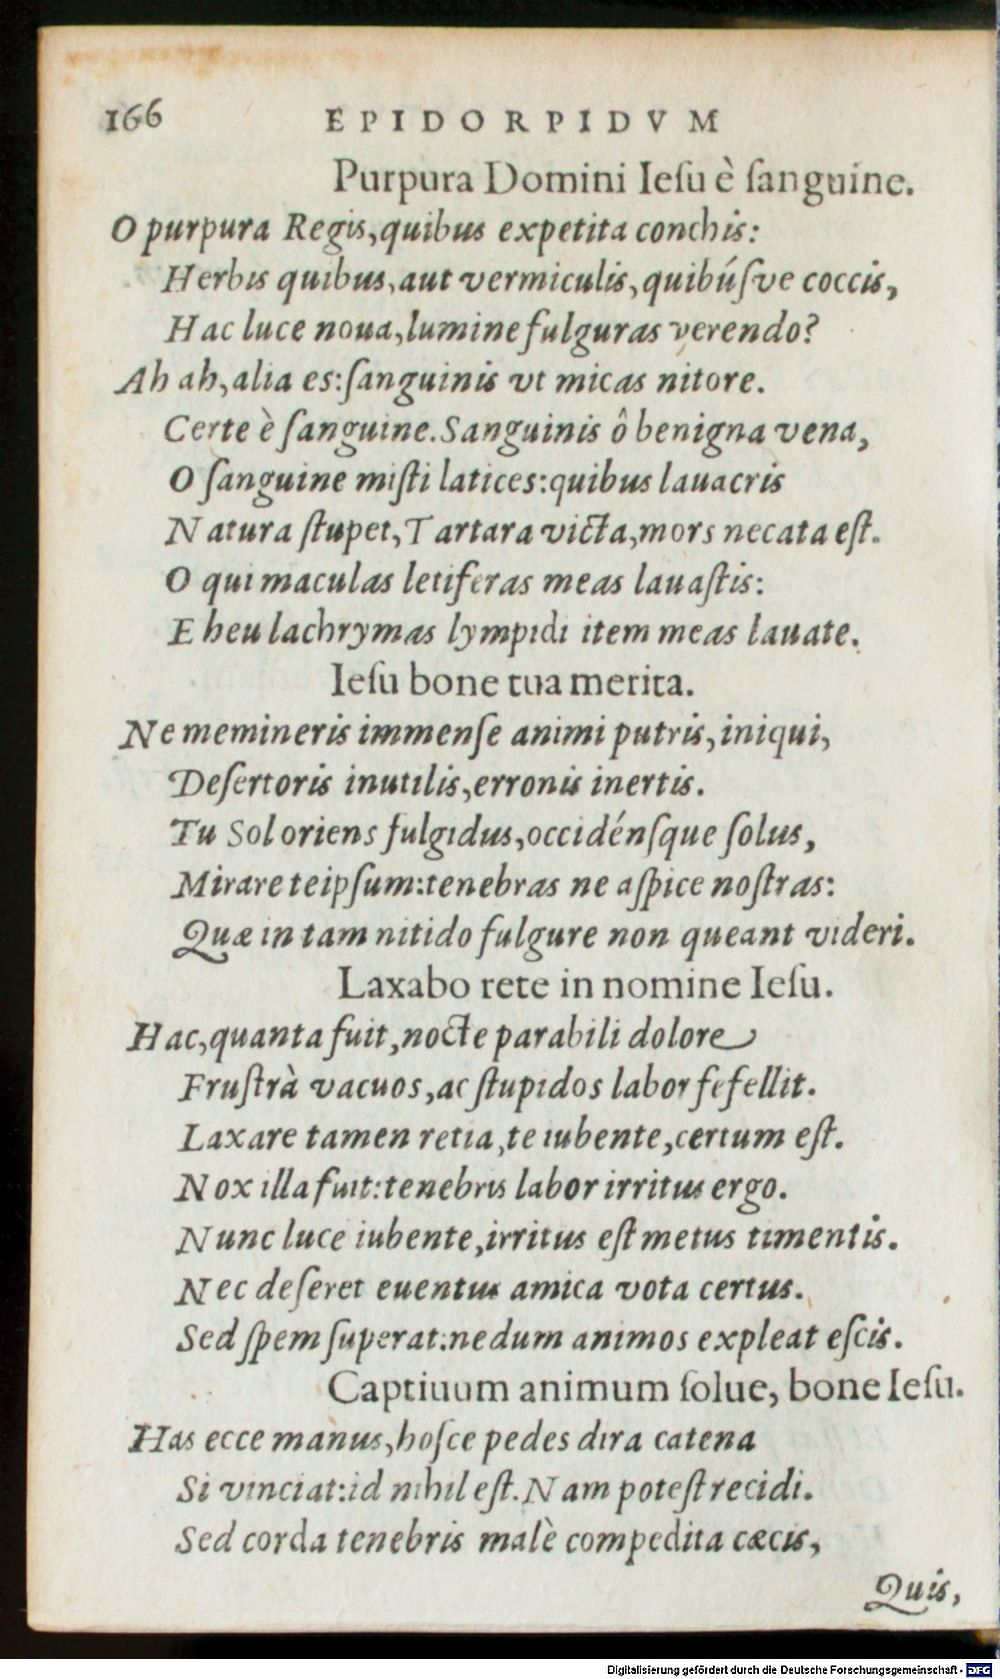 166 EPIDORPIDVM
Purpura Domini Iesu è sanguine.
O purpura Regis, quibus expetita conchis:
Herbis quibus, aut vermiculis, quibúsve coccis,
Hac luce noua, lumine fulguras verendo?
Ah ah, alia es: sanguinis vt micas nitore.
Certe è sanguine. Sanguinis ô benigna vena,
O sanguine misti latices: quibus lauacris
Natura stupet, Tartara victa, mors necata est.
O qui maculas letiferas meas lauastis:
Eheu lachrymas lympidi item meas lauate.
Iesu bone tua merita.
Ne memineris immense animi putris, iniqui,
Desertoris inutilis, erronis inertis.
Tu Sol oriens fulgidus, occidénsque solus,
Mirare teipsum: tenebras ne aspice nostras:
Quæ in tam nitido fulgure non queant videri.
Laxabo rete in nomine Iesu.
Hac, quanta fuit, nocte parabili dolore
Frustrà vacuos, ac stupidos labor fefellit.
Laxare tamen retia, te iubente, certum est.
Nox illa fuit: tenebris labor irritus ergo.
Nunc luce iubente, irritus est metus timentis.
Nec deseret euentus amica vota certus.
Sed spem superat: nedum animos expleat escis.
Captiuum animum solue, bone Iesu.
Has ecce manus, hosce pedes dira catena
Si vinciat: id nihil est. Nam potest recidi.
Sed corda tenebris malè compedita cæcis,
Quis,
Digitalisierung gefördert durch die Deutsche Forschungsgemeinschaft - DFG